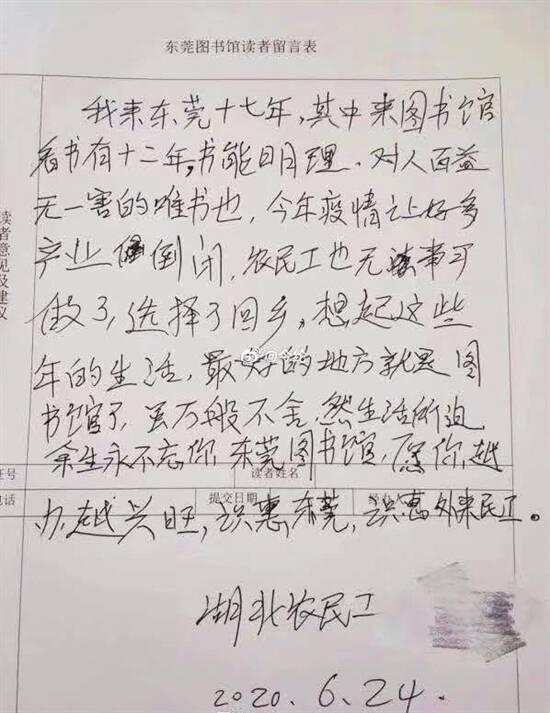 东莞图书馆读者留言表
我来东莞十七年,其中来图书馆
看书有十二年,书能明理、对人百益
无一害的唯书也,今年疫情让好多
产业倒闭,农民工也无事可
做了,选择了回乡。想起这些
年的生活,最好的地方就是图
书馆了,虽万般不舍,然生活所迫
余生永不忘你,东莞图书馆,愿你越
办越兴旺,识惠东莞,识惠外来民工。
湖北农民工
2020.6.24.
读者意见及建议
证号
读者姓名
电话
提交日期